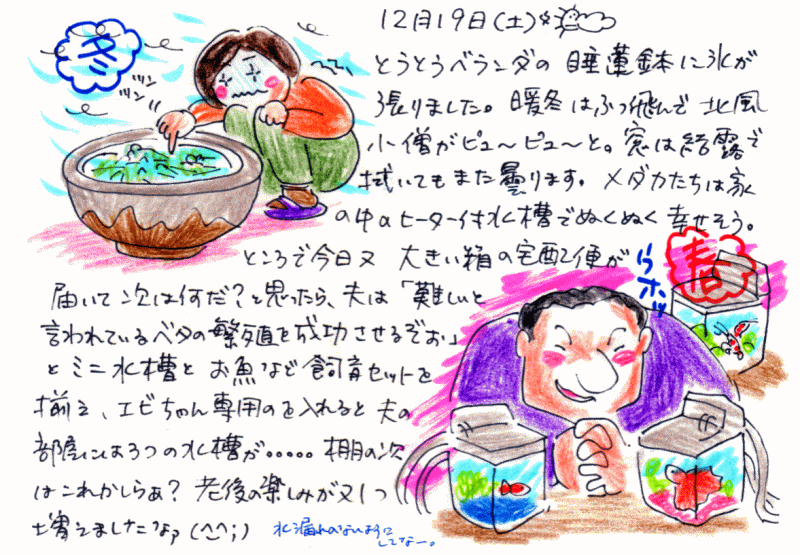 冬
ツンツン
12月19日(土)
とうとうベランダの睡蓮鉢に氷が
張りました。暖冬はふっ飛んで北風
小僧がピュ〜ピュ〜と。窓は結露で
拭いてもまた曇ります。メダカたちは家
の中のヒーター付水槽でぬくぬく幸せそう。
ところで今日又大きい箱の宅配便が
届いて次は何だ?と思ったら、夫は「難しいと
言われているベタの繁殖を成功させるぞぉ」
とミニ水槽とお魚など飼育セットを
揃え、エビちゃん専用のを入れると夫の
部屋には3つの水槽が‥‥‥棚の次
はこれかしらぁ?老後の楽しみが又1つ
増えましたなァ(^^;)
水漏れのないように
してなー。
春